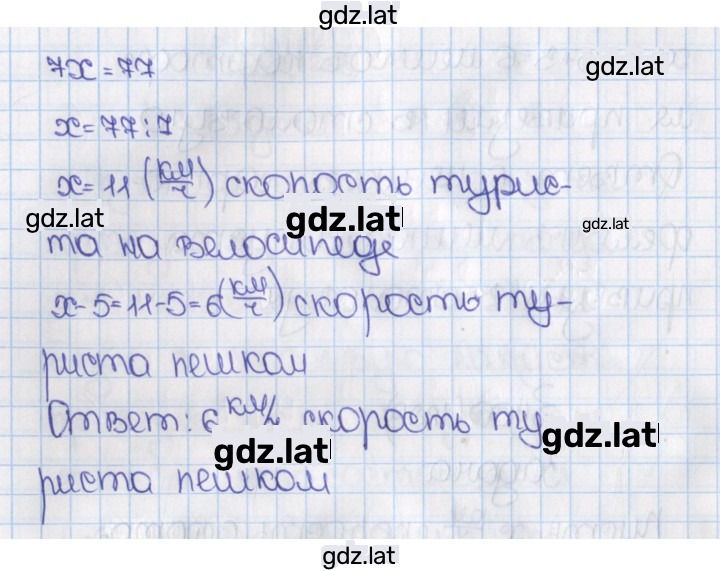 gdz.lat
7x = 77
gdz.lat
x = 77 : 7
x = 11 (км/ч) скорость турис-
gdz.lat
gdz.lat
gdz.lat
та на велосипеде
x - 5 = 11 - 5 = 6 (км/ч) скорость ту-
риста пешком
Ответ: 6 км/ч скорость ту
gdz.lat
gdz.lat
риста пешком
gdz.lat